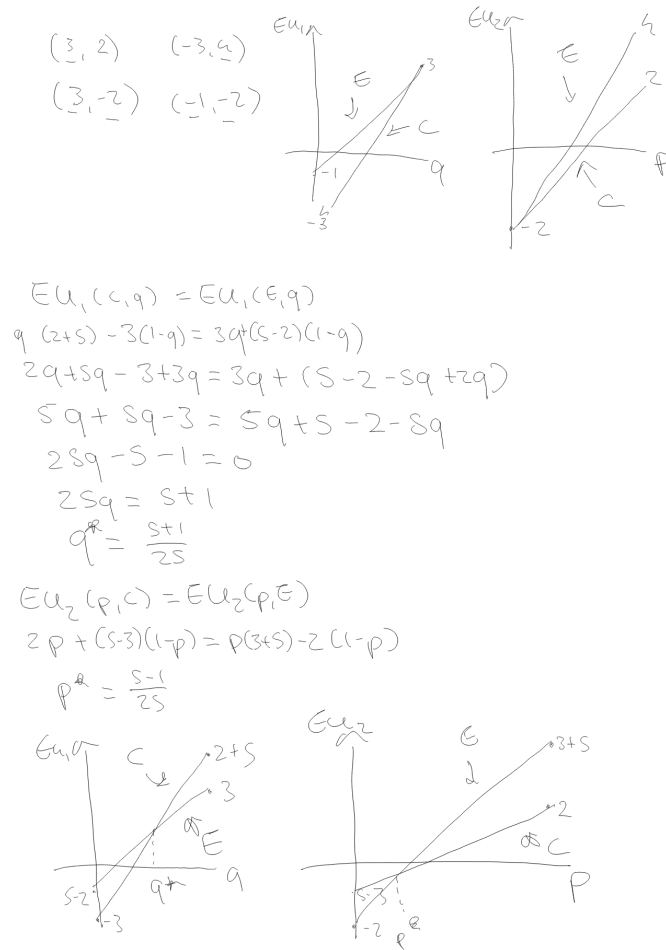 (3, 2) (-3, 4)
(3, -2) (-1, -2)
Eu₁
3
E
C
-1
-3
q
Eu₂
4
E
2
C
-2
P
Eu₁(c,q) = Eu₁(E,q)
q(2+s) -3(1-q) = 3q+(s-2)(1-q)
2q+sq-3+3q = 3q + (s-2-sq+2q)
5q + sq-3 = 5q+s-2-sq
2sq-s-1 = 0
2sq = s+1
q* = s+1/2s
Eu₂(p,c) = Eu₂(p,E)
2p+(s-3)(1-p) = p(3+s)-2(1-p)
p* = s-1/2s
Eu₁
C
2+s
3
E
s-2
-3
q*
q
Eu₂
E
3+s
2
C
s-3
-2
p*
P